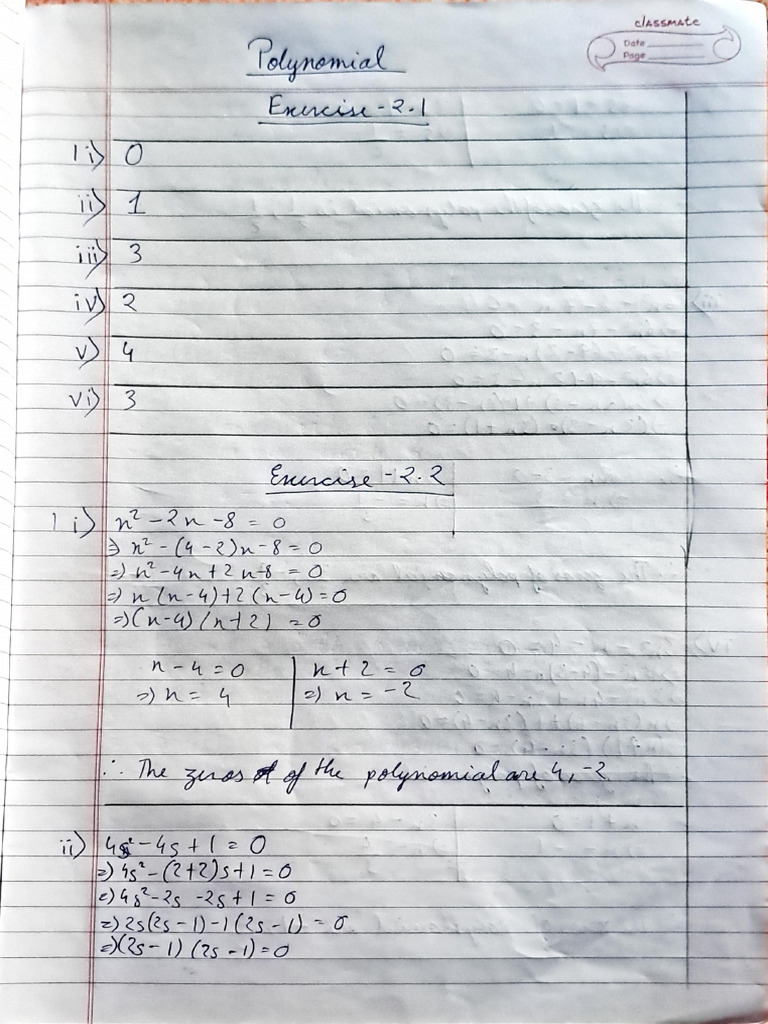 classmate
Date
Page
Polynomial
Exercise-2.1
1 i) 0
ii) 1
iii) 3
iv) 2
v) 4
vi) 3
Exercise-2.2
1 i) x² - 2x - 8 = 0
⇒ x² - (4 - 2)x - 8 = 0
⇒ x² - 4x + 2x - 8 = 0
⇒ x(x - 4) + 2(x - 4) = 0
⇒ (x - 4)(x + 2) = 0
x - 4 = 0 | x + 2 = 0
⇒ x = 4 | ⇒ x = -2
∴ The zeros of the polynomial are 4, -2
ii) 4s² - 4s + 1 = 0
⇒ 4s² - (2+2)s + 1 = 0
⇒ 4s² - 2s - 2s + 1 = 0
⇒ 2s(2s - 1) - 1(2s - 1) = 0
⇒ (2s - 1)(2s - 1) = 0